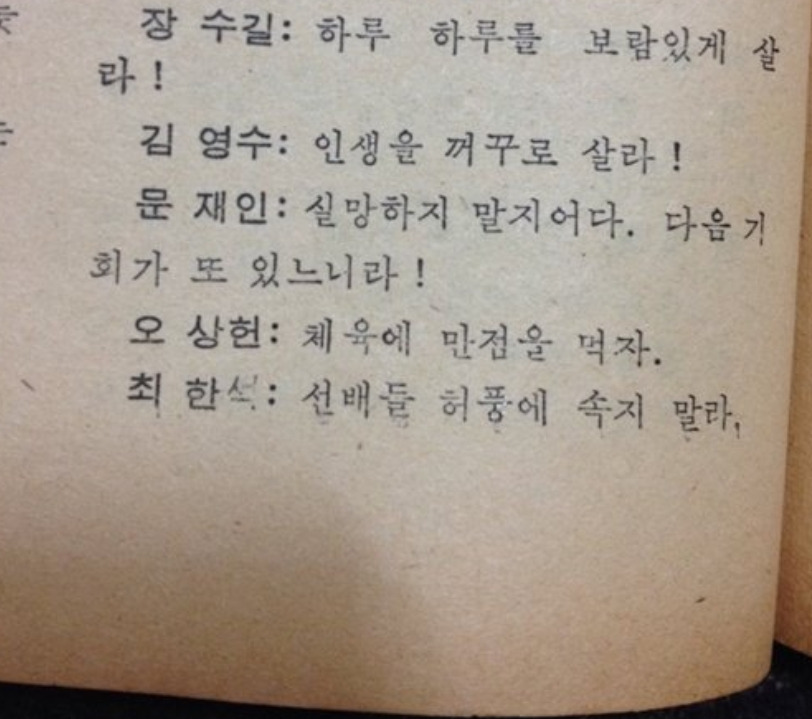 장 수길: 하루 하루를 보람있게 살
라!
김 영수: 인생을 꺼꾸로 살라!
문 재인: 실망하지 말지어다. 다음 기
회가 또 있느니라!
오 상헌: 체육에 만점을 먹자.
최 한석: 선배들 허풍에 속지 말라,